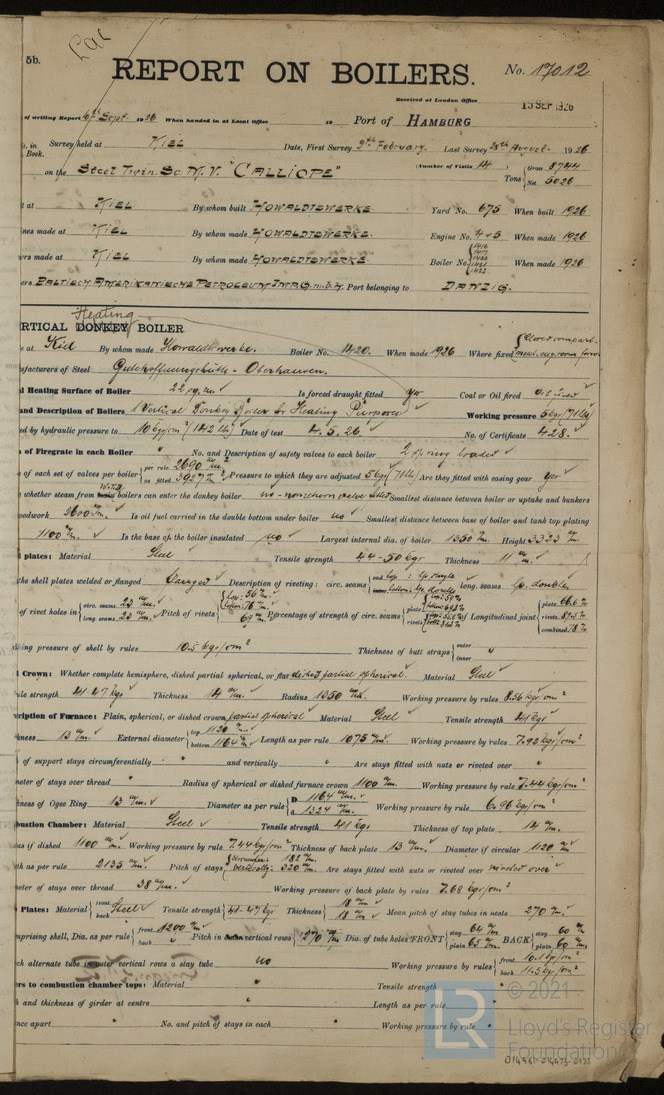 5b.
REPORT ON BOILERS.
No. 17012
Received at London Office
15 SEP 1926
of writing Report 6th Sept. 1926 When handed in at Local Office 19 Port of HAMBURG
in Survey held at KIEL Date, First Survey 9th February. Last Survey 28th August 1926
Book.
on the Steel Twin Sc. M.V. "CALLIOPE" (Number of Visits 14) Tons { Gross 8744
Net 5026
t at KIEL. By whom built HOWALDTSWERKE. Yard No. 675 When built 1926
nes made at KIEL By whom made HOWALDTSWERKE. Engine No. 4+5 When made 1926
ers made at KIEL By whom made HOWALDTSWERKE. Boiler No. When made 1926
ers BALTISCH AMERIKANISCHE PETROLEUM IMP. G.m.b.H. Port belonging to DANZIG.
Heating
RTICAL DONKEY BOILER
e at Kiel By whom made Howaldtswerke. Boiler No. 1420. When made 1926 Where fixed
ufacturers of Steel Gutehoffnungshütte - Oberhausen.
l Heating Surface of Boiler 22 sq. m. Is forced draught fitted yes Coal or Oil fired oil fired
and Description of Boilers 1 Vertical Donkey Boiler for Heating Purposes Working pressure 5 kg (71 lb)
ed by hydraulic pressure to 10 kg/cm² (142 lb) Date of test 4.5.26. No. of Certificate 428.
of Firegrate in each Boiler " No. and Description of safety valves to each boiler 2 spring loaded
of each set of valves per boiler { per rule 2690 m/m² as fitted 3927 m/m² Pressure to which they are adjusted 5 kg (71 lb) Are they fitted with easing gear yes
whether steam from main boilers can enter the donkey boiler no - nonreturn valve fitted Smallest distance between boiler or uptake and bunkers
oodwork 2600 m/m. Is oil fuel carried in the double bottom under boiler no Smallest distance between base of boiler and tank top plating
1100 m/m. Is the base of the boiler insulated no Largest internal dia. of boiler 1350 m/m. Height 3323 m/m
l plates: Material Steel Tensile strength 44-50 kgs Thickness 11 m/m.
the shell plates welded or flanged flanged Description of riveting: circ. seams { end top: lp single inter. bottom: lp double long. seams lp. double.
of rivet holes in { circ. seams 23 m/m. long. seams 23 m/m. Pitch of rivets { top: 56 m/m bottom: 76 m/m 69 m/m Percentage of strength of circ. seams { plate rivets of Longitudinal joint { plate 66.6% rivets combined
king pressure of shell by rules 10.5 kgs/cm² Thickness of butt straps { outer inner "
l Crown: Whether complete hemisphere, dished partial spherical, or flat dished partial spherical. Material Steel
ile strength 41-47 kgs Thickness 14 m/m Radius 1350 m/m. Working pressure by rules 8.56 kgs/cm²
cription of Furnace: Plain, spherical, or dished crown partial spherical Material Steel Tensile strength 41 kgs
kness 13 m/m. External diameter { top 1120 m/m. bottom 1164 m/m Length as per rule 1075 m/m. Working pressure by rules 7.92 kgs/cm²
of support stays circumferentially " and vertically " Are stays fitted with nuts or riveted over "
meter of stays over thread " Radius of spherical or dished furnace crown 1100 m/m. Working pressure by rule 7.44 kgs/cm²
kness of Ogee Ring 13 m/m. Diameter as per rule { D 1164 m/m. d 1324 m/m. Working pressure by rule 6.96 kgs/cm²
bustion Chamber: Material Steel Tensile strength 41 kgs Thickness of top plate 14 m/m.
us if dished 1100 m/m Working pressure by rule 7.44 kgs/cm² Thickness of back plate 13 m/m. Diameter if circular 1120 m/m
th as per rule 2135 m/m. Pitch of stays { 182 m/m. vertically: 320 m/m. Are stays fitted with nuts or riveted over riveted over
meter of stays over thread 38 m/m. Working pressure of back plate by rules 7.68 kgs/cm²
Plates: Material { front back Steel Tensile strength { 41-47 kgs Thickness { 18 m/m 18 m/m. Mean pitch of stay tubes in nests 270 m/m.
mprising shell, Dia. as per rule { front 1200 m/m back " Pitch in outer vertical rows { 270 m/m Dia. of tube holes FRONT { stay 64 m/m plain 65 m/m. BACK { stay 60 m/m plain 60 m/m.
ch alternate tube in outer vertical rows a stay tube no Working pressure by rules { front 10.1 kgs/cm² back 11.5 kgs/cm²
ers to combustion chamber tops: Material " Tensile strength
h and thickness of girder at centre " Length as per rule "
nce apart " No. and pitch of stays in each " Working pressure by rule "
LR
© 2021
Lloyd's Register
Foundation